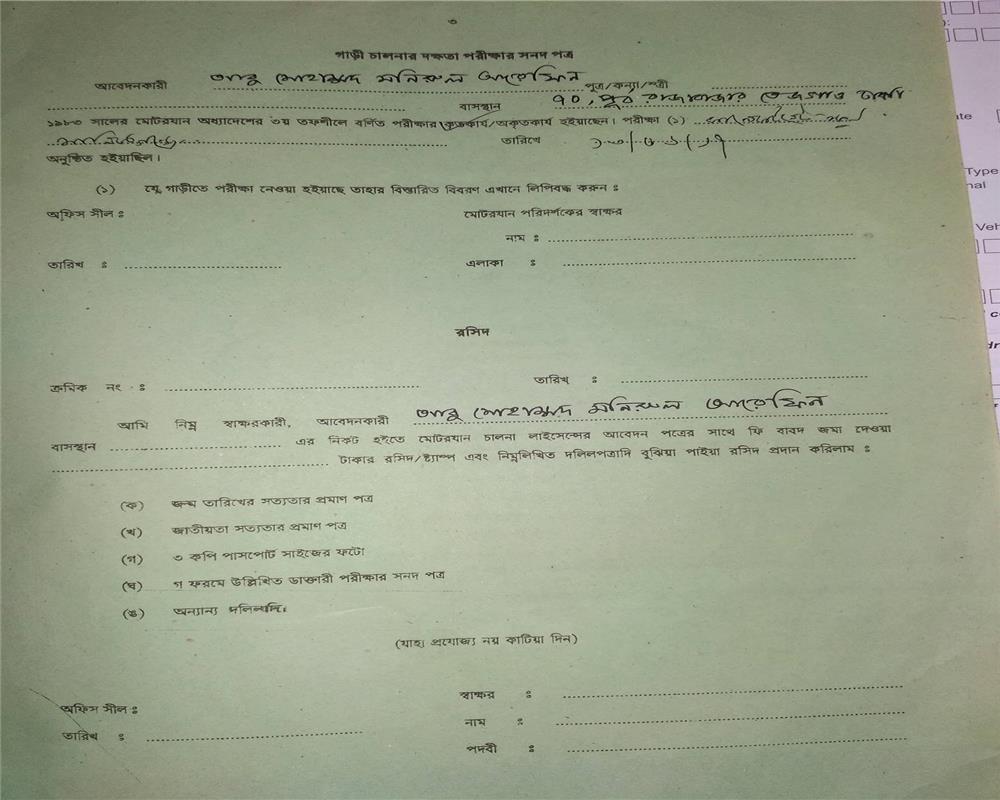 ৩
গাড়ী চালনার দক্ষতা পরীক্ষার সনদ পত্র
আবেদনকারী আবু মোহাম্মদ মনিরুল আরেফিন পুত্র/কন্যা/স্ত্রী
বাসস্থান ৭০, পূর্ব রাজাবাজার তেজগাও ঢাকা
১৯৮৩ সালের মোটরযান অধ্যাদেশের ৩য় তফশীলে বর্ণিত পরীক্ষার কৃতকার্য/অকৃতকার্য হইয়াছেন। পরীক্ষা (১)
তারিখে
অনুষ্ঠিত হইয়াছিল।
(১) যে গাড়ীতে পরীক্ষা নেওয়া হইয়াছে তাহার বিস্তারিত বিবরণ এখানে লিপিবদ্ধ করুন ঃ
অফিস সীল ঃ মোটরযান পরিদর্শকের স্বাক্ষর
নাম ঃ
তারিখ ঃ এলাকা ঃ
রসিদ
ক্রমিক নং ঃ তারিখ ঃ
আমি নিম্ন স্বাক্ষরকারী, আবেদনকারী আবু মোহাম্মদ মনিরুল আরেফিন
বাসস্থান এর নিকট হইতে মোটরযান চালনা লাইসেন্সের আবেদন পত্রের সাথে ফি বাবদ জমা দেওয়া
টাকার রসিদ/ষ্ট্যাম্প এবং নিম্নলিখিত দলিলপত্রাদি বুঝিয়া পাইয়া রসিদ প্রদান করিলাম ঃ
(ক) জন্ম তারিখের সত্যতার প্রমাণ পত্র
(খ) জাতীয়তা সত্যতার প্রমাণ পত্র
(গ) ৩ কপি পাসপোর্ট সাইজের ফটো
(ঘ) গ ফরমে উল্লিখিত ডাক্তারী পরীক্ষার সনদ পত্র
(ঙ) অন্যান্য দলিলাদি।
(যাহা প্রযোজ্য নয় কাটিয়া দিন)
স্বাক্ষর ঃ
অফিস সীল ঃ
নাম ঃ
তারিখ ঃ
পদবী ঃ
Type
Veh